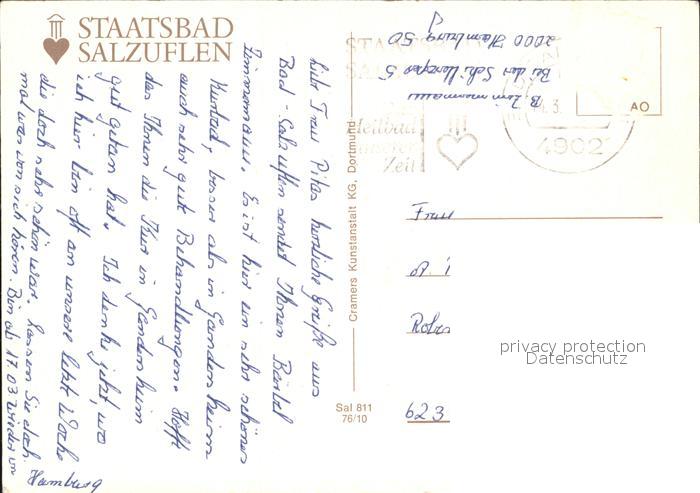 STAATSBAD
SALZUFLEN
Liebe Frau Pilar herzliche Grüße aus
Bad-Salzuflen sendet Ihnen Bärbel
Zimmermann. Es ist hier ein sehr schönes
Kurbad, besser als in Gandersheim
auch sehr gute Behandlungen. Hoffe
das Ihnen die Kur in Gandersheim
gut getan hat. Ich denke jetzt, wo
ich hier bin oft an unsere letzte Woche
die doch sehr schön war. Lassen Sie doch
mal was von sich hören. Bin ab 17.03 wieder in
Hamburg
B. Zimmermann
Bei der Schilleroper 5
2000 Hamburg 50
STAATSBAD
SALZUFLEN
Heilbad
unserer
Zeit
.3.
4902
AO
Cramers Kunstanstalt KG, Dortmund
Sal 811
76/10
Frau
623
privacy protection
Datenschutz